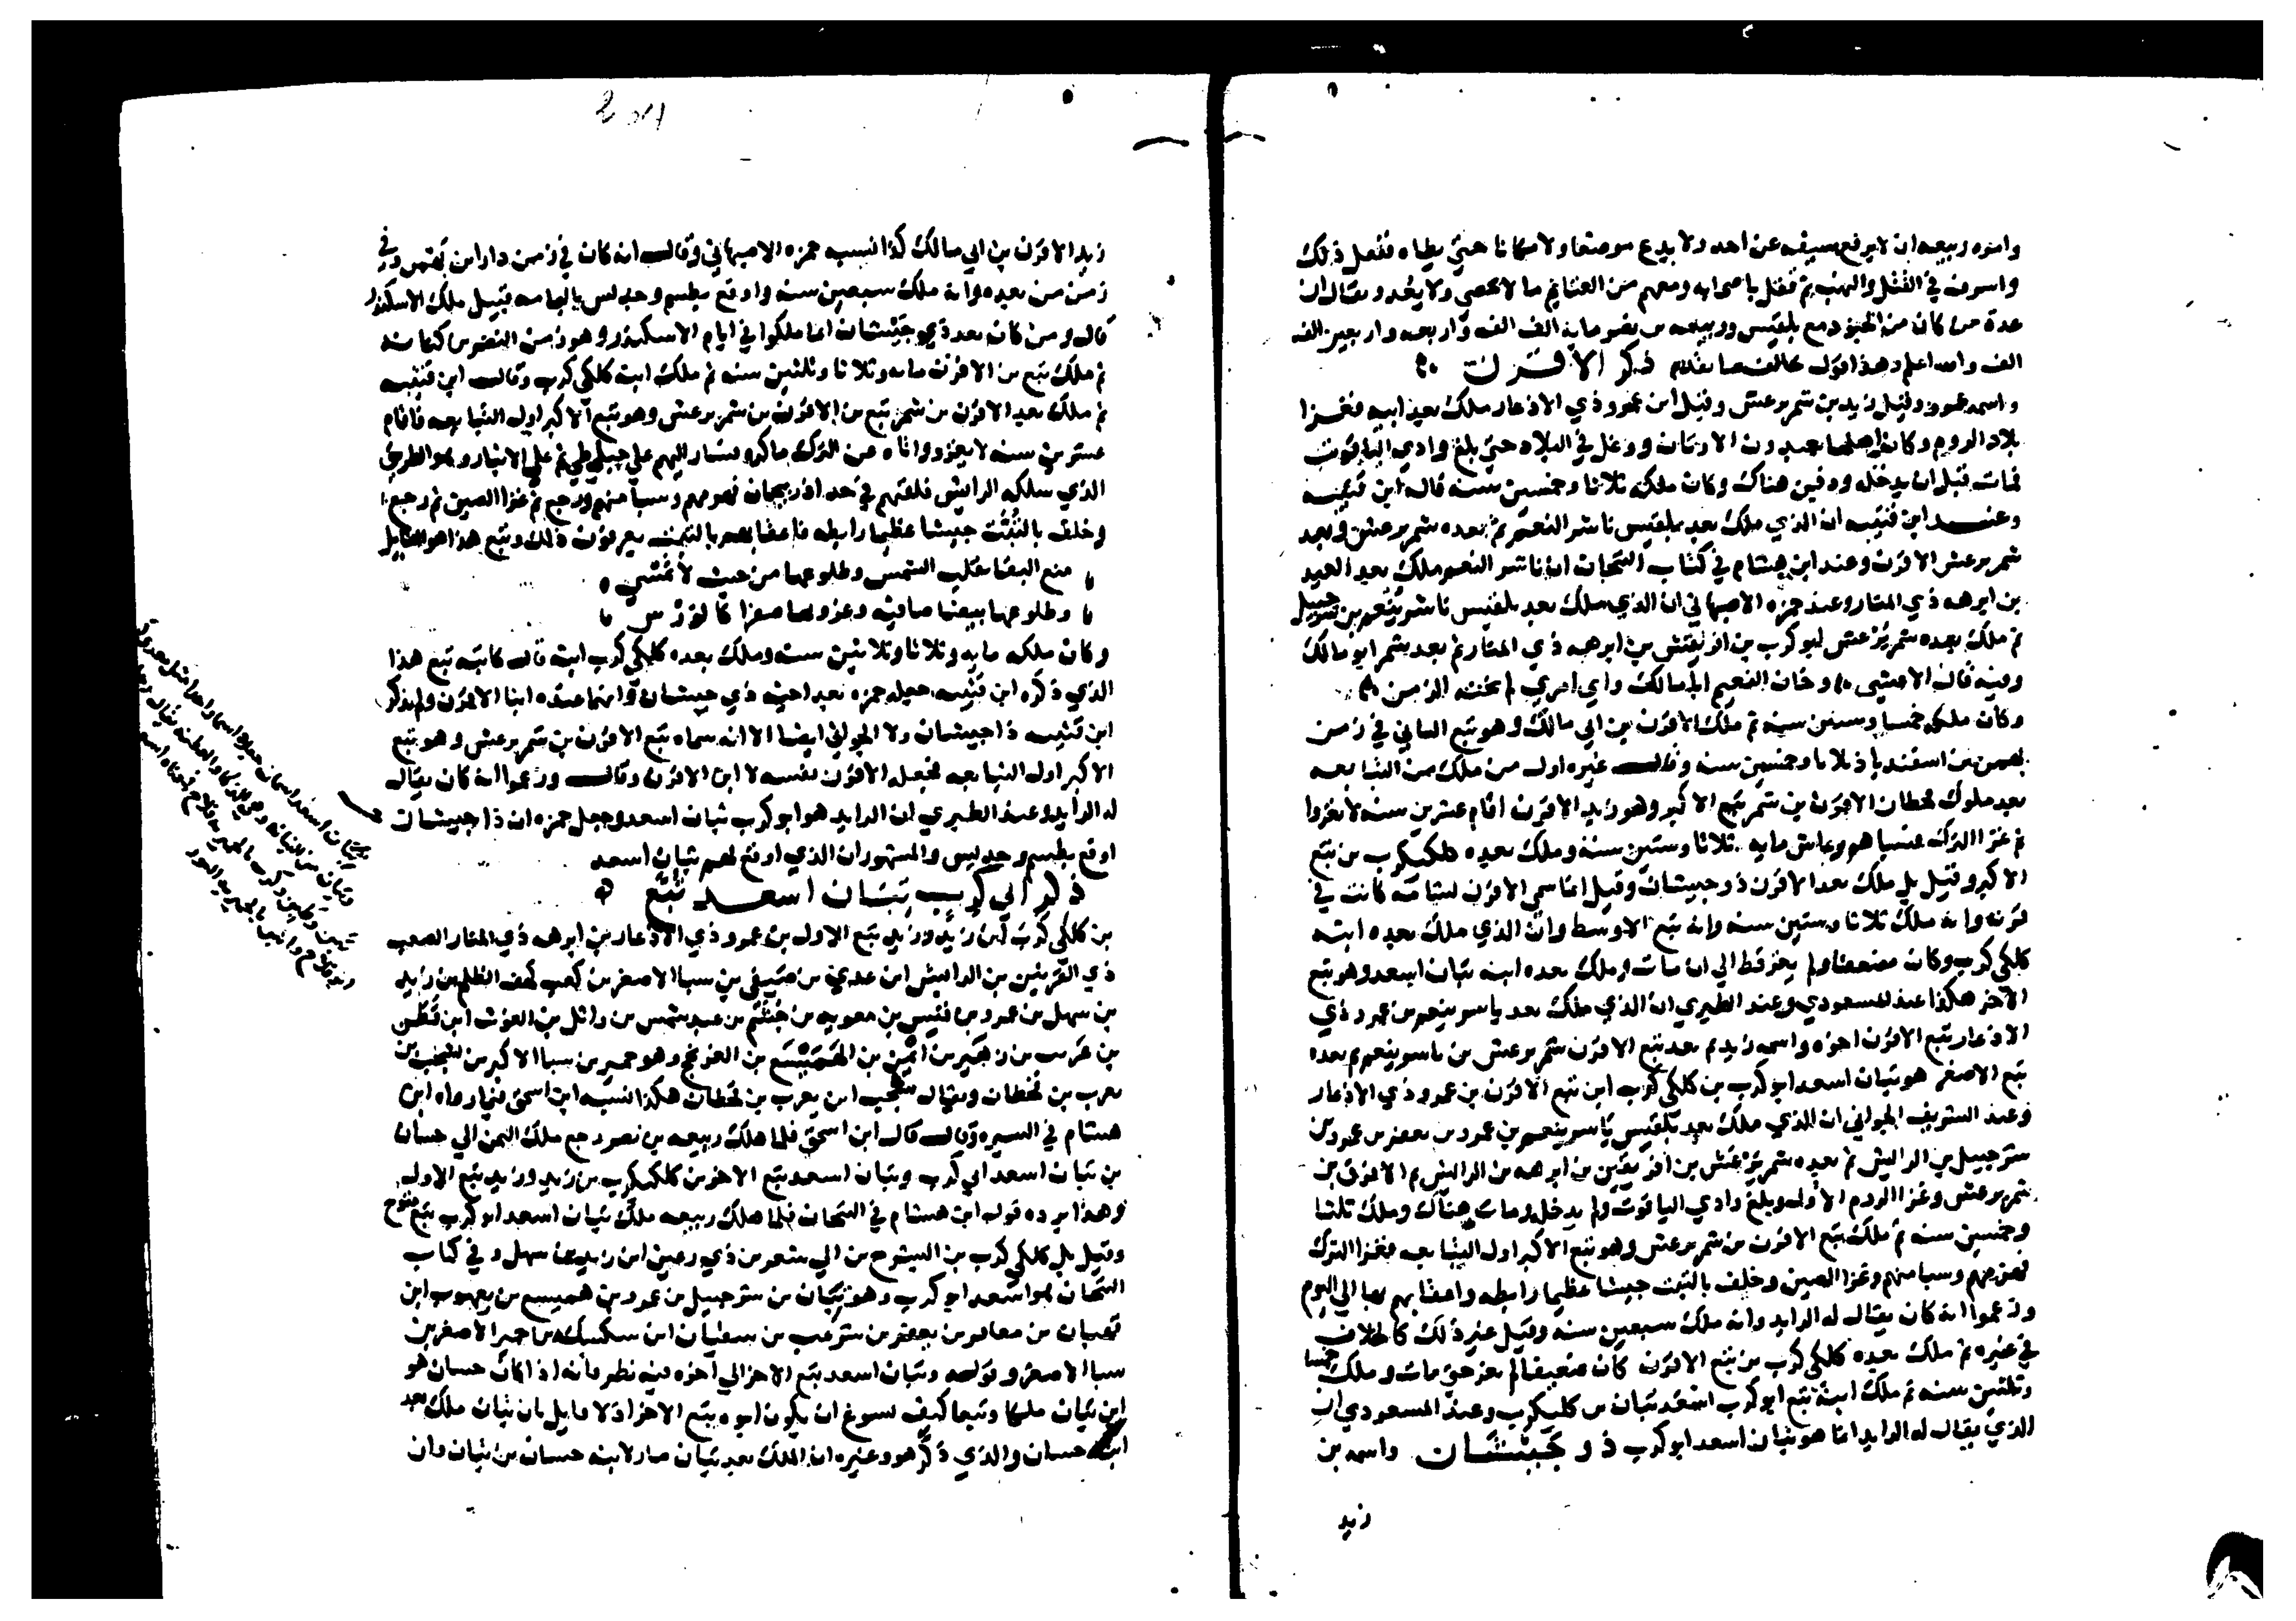 وامره ربيعه ان لا يرفع سيفه عن احد ولا يدع موضعا ولا مكانا حتى يطاه ففعل ذلك
واسرف في القتل والنهب ثم قفل باصحابه ومعهم من الغنايم ما لا يحصى ولا يعد ويقال ان
عدة من كان من الجنود مع بلقيس وربيعه بن نصر مايه الف الف واربعه واربعين الف
الف والله اعلم وهذا القول مخالف ما تقدم ذكر الاقرن
واسمه عمرو وقيل زيد بن شمر يرعش وقيل ابن عمرو ذي الاذعار ملك بعد ابيه فغزا
بلاد الروم وكان اهلها يعبدون الاوثان ووغل في البلاد حتى بلغ وادي الياقوت
فمات قبل ان يدخله ودفن هناك وكان ملكه ثلاثا وخمسين سنه قاله ابن قتيبه
وعند ابن قتيبه ان الذي ملك بعد بلقيس ناشر النعم ثم بعده شمر يرعش وبعد
شمر يرعش الاقرن وعند ابن هشام في كتاب التيجان ان ناشر النعم ملك بعد العبد
بن ابرهه ذي المنار وعند حمزه الاصبهاني ان الذي ملك بعد بلقيس ناشر ينعم بن شرحبيل
ثم ملك بعده شمر يرعش ابو كرب بن افريقش بن ابرهه ذي المنار ثم بعد شمر ابو مالك
وفيه قال الاعشى وخان النعيم ابا مالك واي امري لم يخنه الزمن
وكان ملكه خمسا وستين سنه ثم ملك الاقرن بن ابي مالك وهو تبع الثاني في زمن
بهمن بن اسفندياذ ثلاثا وخمسين سنه وقال غيره اول من ملك من التبابعه
بعد ملوك قحطان الاقرن بن شمر تبع الاكبر وهو زيد الاقرن اقام عشرين سنه لا يغزوا
ثم غزا الترك وعاش مايه وثلاثا وستين سنه وملك بعده ملكيكرب بن تبع
الاكبر وقيل بل ملك بعد الاقرن ذو جيشان وقيل انما سمي الاقرن لشامه كانت في
قرنه وانه ملك ثلاثا وستين سنه وانه تبع الاوسط وان الذي ملك بعده ابنه
كلكي كرب وكان مضعفا ولم يغز قط الى ان مات وملك بعده ابنه تبان اسعد وهو تبع
الاخر هكذا عند المسعودي وعند الطبري ان الذي ملك بعد ياسر ينعم بن عمرو ذي
الاذعار تبع الاقرن اخوه واسمه زيد ثم بعد تبع الاقرن شمر يرعش بن ياسر ينعم ثم بعده
تبع الاصغر هو تبان اسعد ابو كرب بن كلكي كرب ابن تبع الاقرن بن عمرو ذي الاذعار
وعند الشريف الجواني ان الذي ملك بعد بلقيس ياسر ينعم بن عمرو بن يعفر بن عمرو بن
شرحبيل بن الرايش ثم بعده شمر يرعش بن افريقيس بن ابرهه بن الرايش ثم الاقرن بن
شمر يرعش وغزا الروم الاوله وبلغ وادي الياقوت ولم يدخله ومات هناك وملك ثلثا
وخمسين سنه ثم ملك تبع الاقرن بن شمر يرعش وهو تبع الاكبر اول التبابعه فغزا الترك
فهزمهم وسبا منهم وغزا الصين وخلف بالتبت جيشا عظيما رابطه واعقابهم بها الى اليوم
وزعموا انه كان يقال له الرايد وانه ملك سبعين سنه وقيل غير ذلك كالخلاف
في غيره ثم ملك بعده كلكي كرب بن تبع الاقرن كان ضعيفا لم يغز حتى مات وملك خمسا
وثلثين سنه ثم ملك ابنه تبع ابو كرب اسعد تبان بن كليكرب وعند المسعودي ان
الذي يقال له الرايد انما هو تبان اسعد ابو كرب ذو جيشان واسمه بن
زيد
زيد الاقرن بن ابي مالك كذا نسبه حمزه الاصبهاني وقال انه كان في زمن دارا بن بهمن وفي
زمن من بعده وانه ملك سبعين سنه واوقع بطسم وجديس باليمامه قبيل ملك الاسكندر
قال ومن كان بعد ذي جيشان انما ملكوا في ايام الاسكندر وهو زمن النضر بن كنانه
ثم ملك تبع بن الاقرن مايه وثلاثا وثلثين سنه ثم ملك ابنه كلكي كرب وقال ابن قتيبه
ثم ملك بعد الاقرن بن شمر تبع بن الاقرن بن شمر يرعش وهو تبع الاكبر اول التبابعه فاقام
عشرين سنه لا يغزو واتاه عن الترك ما كره فسار اليهم على جبلي طي ثم على الانبار وهو الطريق
الذي سلكه الرايش فلقيهم في حد اذربيجان فهزمهم وسبا منهم ورجع ثم غزا الصين ثم رجع
وخلف بالتبت جيشا عظيما رابطه فاعقابهم بالتبت يعرفون ذلك وتبع هذا هو القايل
منع البقا تقلب الشمس وطلوعها من حيث لا تمسي
وطلوعها بيضا صافيه وغروبها صفرا كالورس
وكان ملكه مايه وثلاثا وثلاثين سنه وملك بعده كلكي كرب ابنه قال كاتبه تبع هذا
الذي ذكره ابن قتيبه جعله حمزه بعد اخيه ذي جيشان وانهما عنده ابنا الاقرن ولم يذكر
ابن قتيبه ذا جيشان ولا الجواني ايضا الا انه سماه تبع الاقرن بن شمر يرعش وهو تبع
الاكبر اول التبابعه فجعله الاقرن نفسه لا ابن الاقرن وقال وزعموا انه كان يقال
له الرايد وعند الطبري ان الرايد هو ابو كرب تبان اسعد وجعل حمزه ان ذا جيشان
اوقع بطسم وجديس والمشهور ان الذي اوقع بهم تبان اسعد
ذكر ابي كرب تبان اسعد تبع
بن كلكي كرب ابن زيد وزيد تبع الاول بن عمرو ذي الاذعار بن ابرهه ذي المنار الصعب
ذي القرنين بن الرايش ابن عدي بن صيفي بن سبا الاصغر بن كعب كهف الظلم بن زيد
بن سهل بن عمرو بن قيس بن معويه بن جشم بن عبد شمس بن وائل بن الغوث ابن قطن
بن عريب بن زهير بن ايمن بن الهميسع بن العرنجج وهو حمير بن سبا الاكبر بن يشجب بن
يعرب بن قحطان ويقال يشجب ابن يعرب بن قحطان هكذا نسبه ابن اسحق فيما رواه ابن
هشام في السيره وقال قال ابن اسحق فلما هلك ربيعه بن نصر رجع ملك اليمن الى حسان
بن تبان اسعد ابي كرب وتبان اسعد تبع الاخر بن كلكيكرب بن زيد وزيد تبع الاول
وهذا يرده قول ابن هشام في التيجان فلما هلك ربيعه ملك تبان اسعد ابو كرب تبع
وقيل بل كلكي كرب بن ابي شمر بن ذي رعين ابن زيد بن سهل وفي كتاب
التيجان هو اسعد ابو كرب وهو تبان بن شرحبيل بن عمرو بن هميسع بن ابن
بن بن يعفر بن بن سفيان ابن سكسك بن حمير الاصغر بن
سبا الاصغر وقوله وتبان اسعد تبع الاخر الى اخره فيه نظر فانه اذا كان حسان هو
ابن تبان ملكا وتبعا كيف يسوغ ان يكون ابوه تبع الاخر اذ لا قايل بان تبان ملك بعد
ابنه حسان والذي ذكره هو وغيره ان الملك بعد تبان صار لابنه حسان بن تبان وان